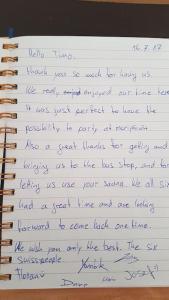 16.7.17
Hello Timo,
thank you so much for having us.
We really enjoyed our time here
It was just perfect to have the
possibility to party at
Also a great thanks for getting and
bringing us to the bus stop, and for
letting us use your sauna. We all six
had a great time and are looking
forward to come back one time.
We wish you only the best. The six
Swisspeople